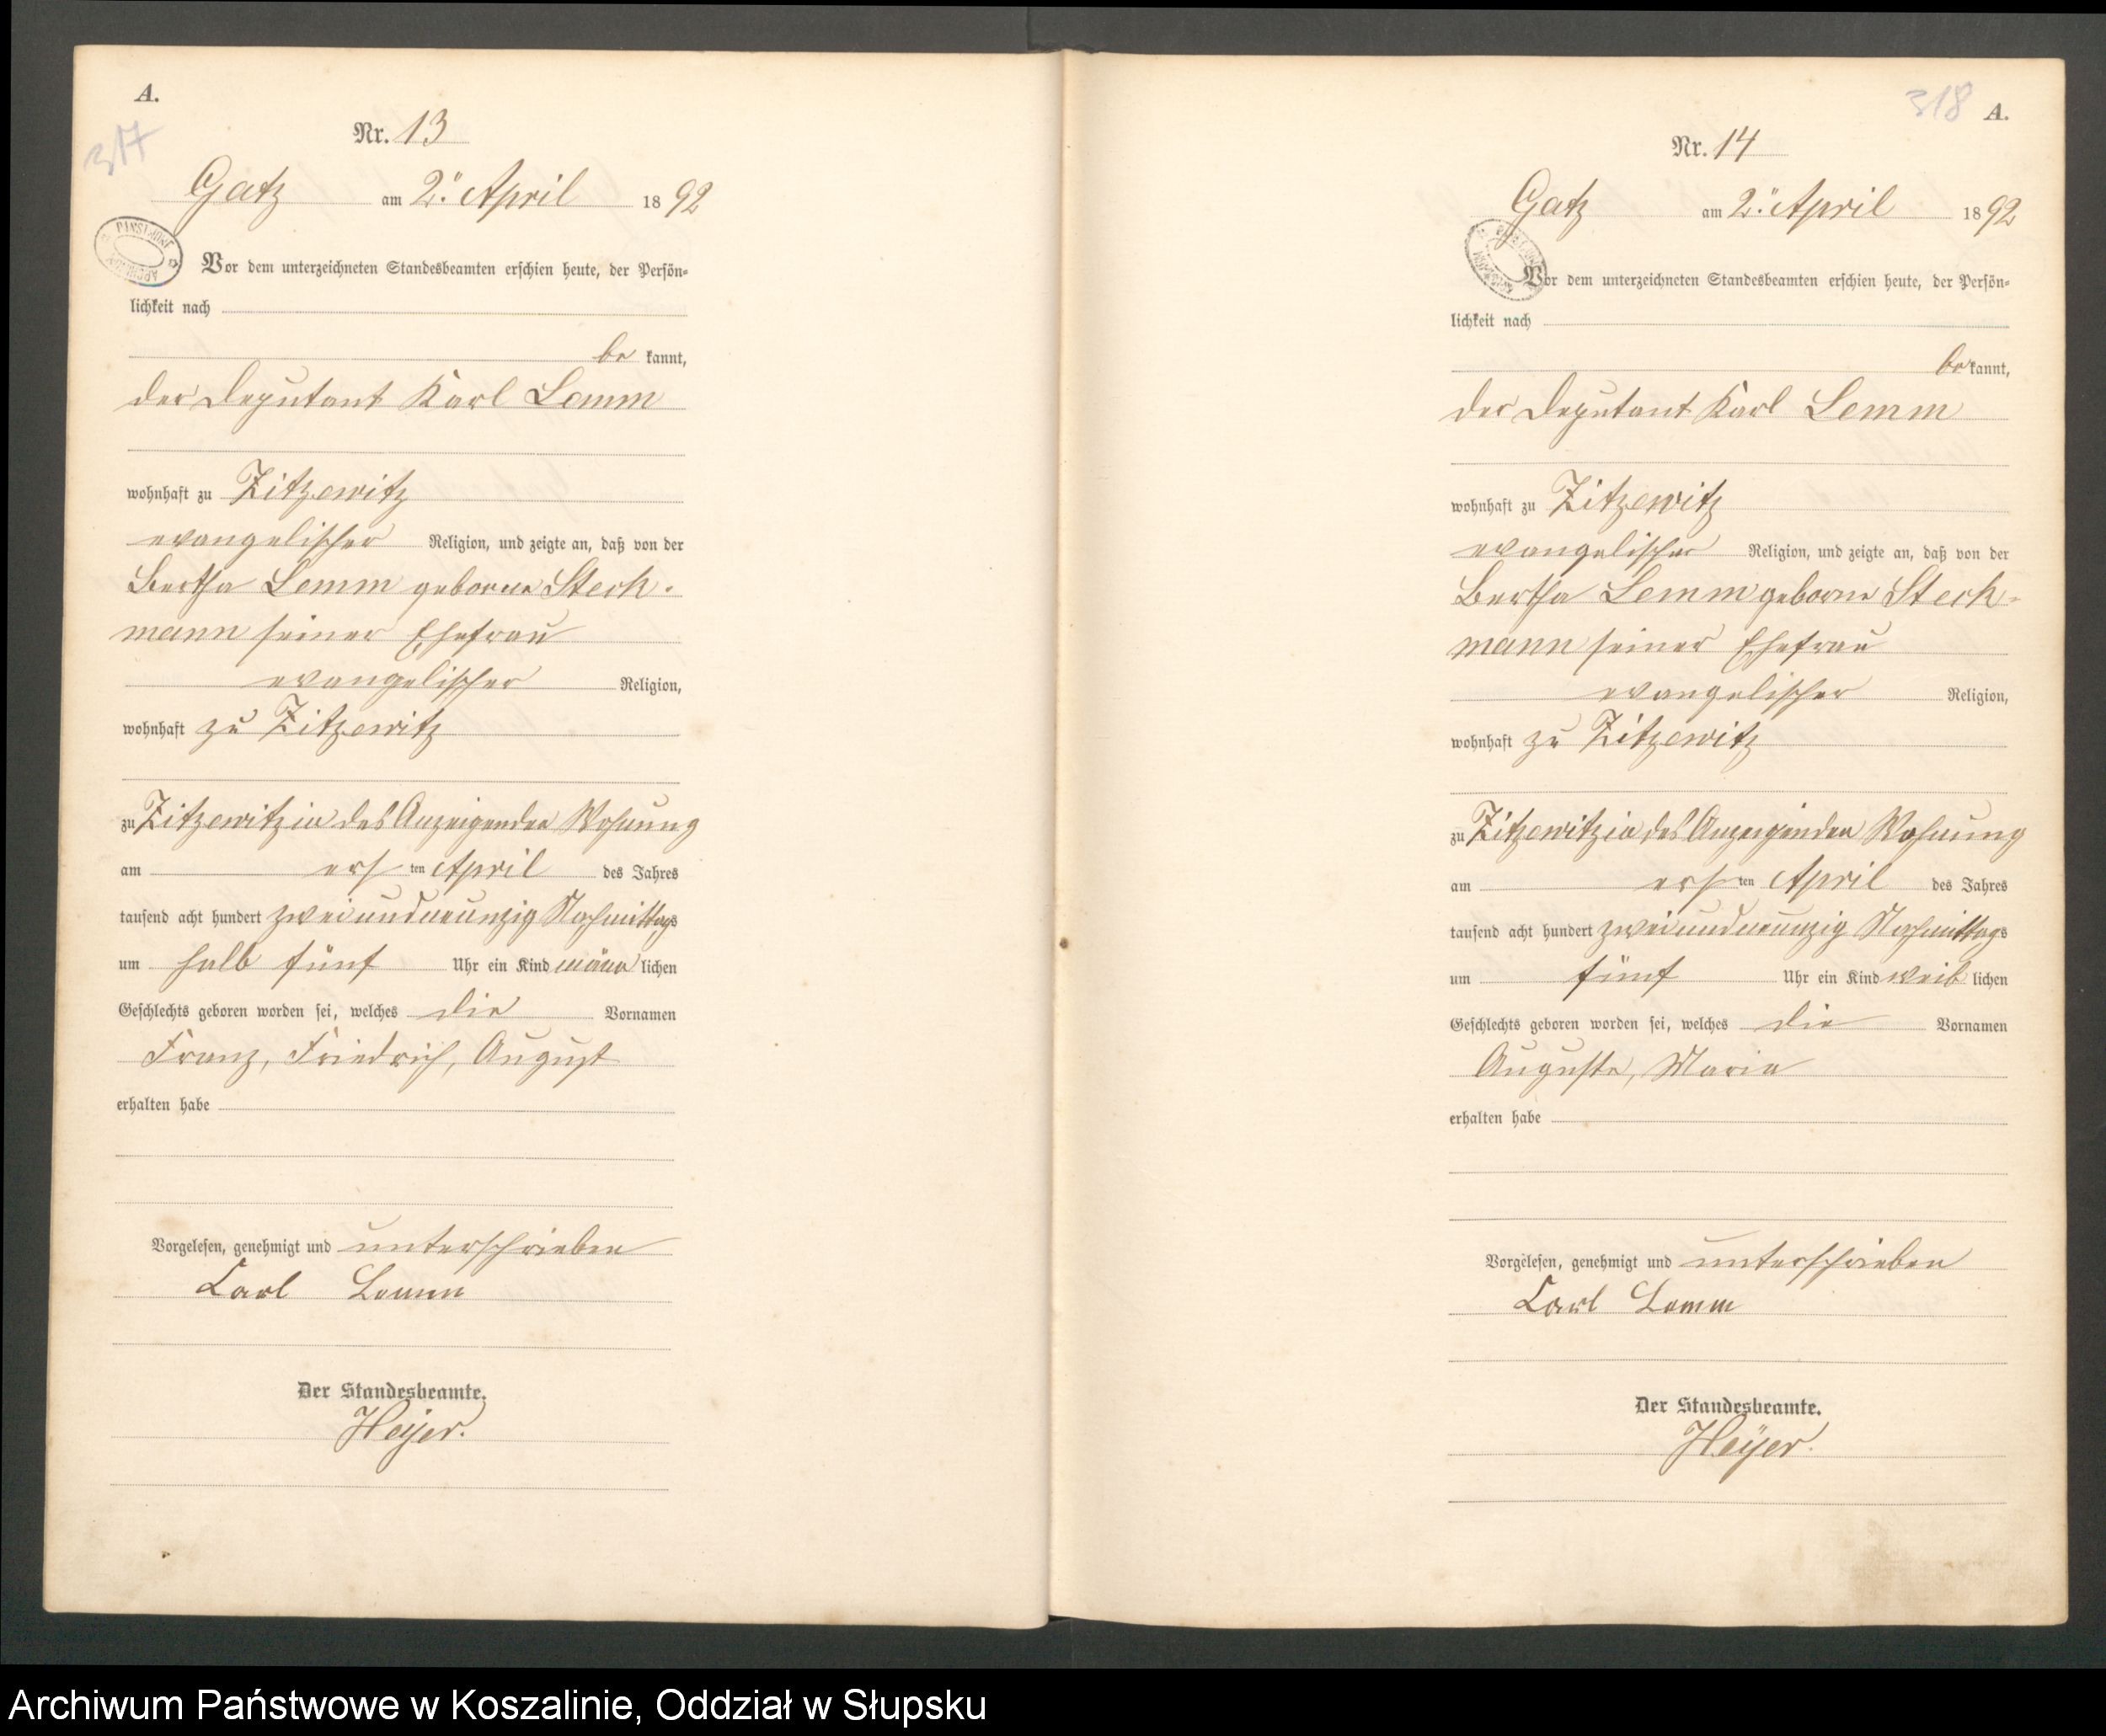 A.
317
Nr. 13
Gatz am 2ten April 1892
Vor dem unterzeichneten Standesbeamten erschien heute, der Persön-
lichkeit nach
be kannt,
der Deputant Karl Lemm
wohnhaft zu Zitzewitz
evangelischer Religion, und zeigte an, daß von der
Bertha Lemm geborne Steck-
mann seiner Ehefrau
evangelischer Religion,
wohnhaft zu Zitzewitz
zu Zitzewitz in des Anzeigenden Wohnung
am ersten April des Jahres
tausend acht hundert zweiundneunzig Nachmittags
um halb fünf Uhr ein Kind männlichen
Geschlechts geboren worden sei, welches die Vornamen
Franz, Friedrich, August
erhalten habe
Vorgelesen, genehmigt und unterschrieben
Carl Lemm
Der Standesbeamte.
Heyer.
318 A.
Nr. 14
Gatz am 2ten April 1892
Vor dem unterzeichneten Standesbeamten erschien heute, der Persön-
lichkeit nach
bekannt,
der Deputant Karl Lemm
wohnhaft zu Zitzewitz
evangelischer Religion, und zeigte an, daß von der
Bertha Lemm geborne Steck-
mann seiner Ehefrau
evangelischer Religion,
wohnhaft zu Zitzewitz
zu Zitzewitz in des Anzeigenden Wohnung
am ersten April des Jahres
tausend acht hundert zweiundneunzig Nachmittags
um fünf Uhr ein Kind weiblichen
Geschlechts geboren worden sei, welches die Vornamen
Auguste, Marie
erhalten habe
Vorgelesen, genehmigt und unterschrieben
Carl Lemm
Der Standesbeamte.
Heyer.
Archiwum Państwowe w Koszalinie, Oddział w Słupsku